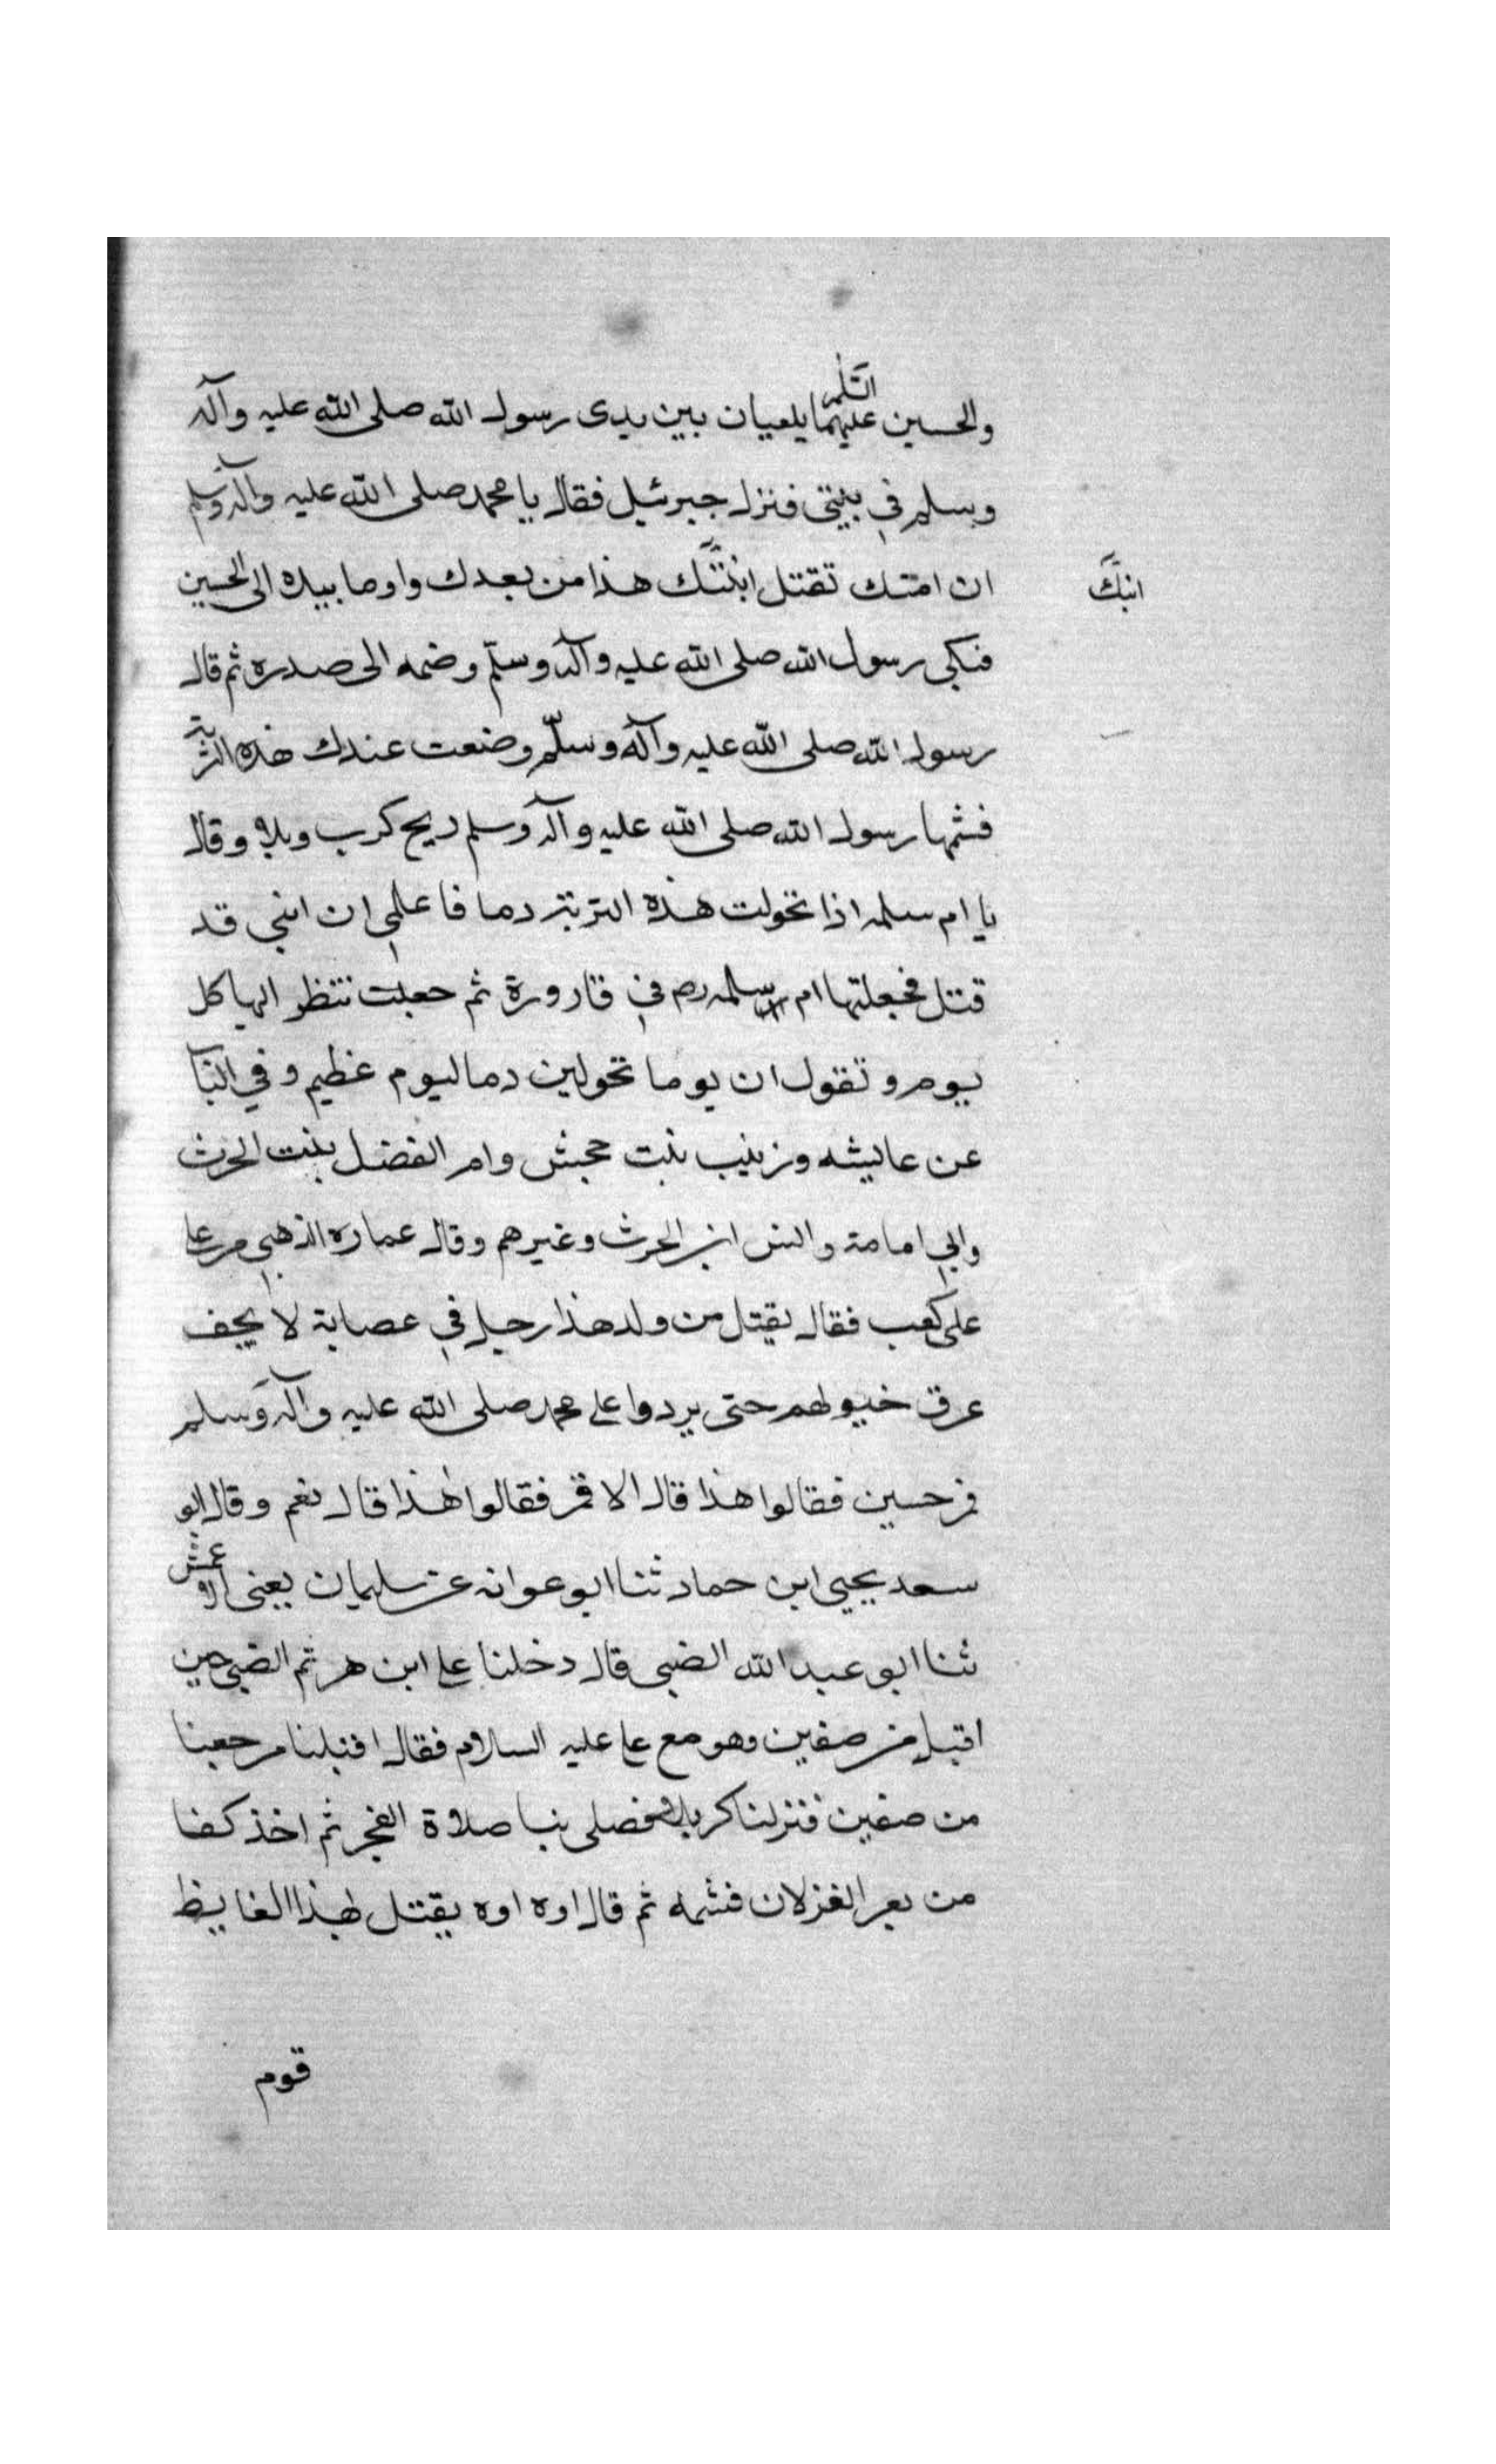 والحسين عليهما السلم يلعبان بين يدى رسول الله صلى الله عليه وآله
وسلم في بيتي فنزل جبرئيل فقال يا محمد صلى الله عليه وآله وسلم
ان امتك تقتل ابنتك هذا من بعدك واوما بيده الى الحسين
ابنك
فبكى رسول الله صلى الله عليه وآله وسلم وضمه الى صدره ثم قال
رسول الله صلى الله عليه وآله وسلم وضعت عندك هذه التربة
فشمها رسول الله صلى الله عليه وآله وسلم ريح كرب وبلاء وقال
يا ام سلمه اذا تحولت هذه التربة دما فاعلمي ان ابني قد
قتل فجعلتها ام سلمه رض في قارورة ثم جعلت تنظر اليها كل
يوم وتقول ان يوما تحولين دما ليوم عظيم وفي الباب
عن عايشه وزينب بنت جحش وام الفضل بنت الحرث
وابي امامة وانس ابن الحرث وغيرهم وقال عماره الذهبي مر علي
على كعب فقال يقتل من ولد هذا رجل في عصابة لا يجف
عرق خيولهم حتى يردوا على محمد صلى الله عليه وآله وسلم
فمر حسين فقالوا هذا قال لا فمر فقالوا هذا قال نعم وقال ابو
سعد يحيى ابن حماد ثنا ابو عوانه عن سليمان يعني الاعمش
ثنا ابو عبد الله الضبي قال دخلنا على ابن هرثم الضبي حين
اقبل من صفين وهو مع علي عليه السلام فقال اقبلنا مرجعنا
من صفين فنزلنا كربلا فصلى بنا صلاة الفجر ثم اخذ كفا
من بعر الغزلان فشمه ثم قال اوه اوه يقتل بهذا الغايط
قوم